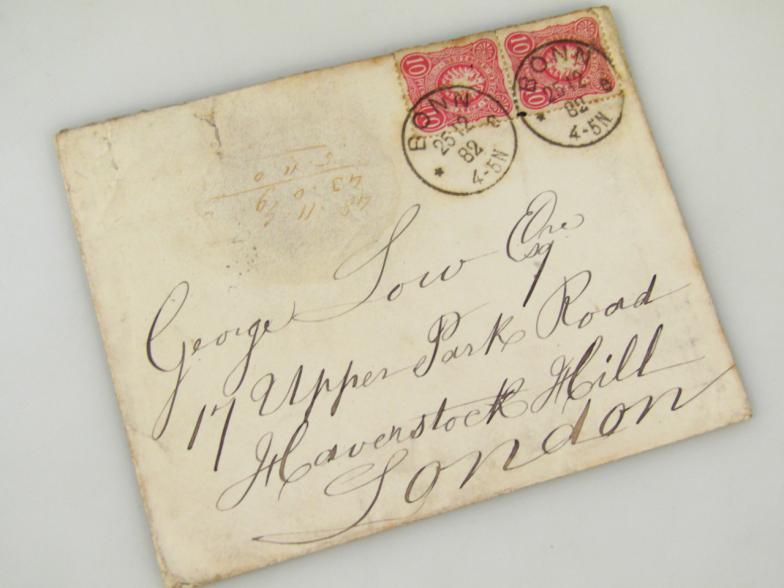 10 10
10 10
BONN
25 12
82
4-5N
BONN
25 12
82
4-5N
George Low Esqre
17 Upper Park Road
Haverstock Hill
London
48 . 11 . 6
43 . 0 . 6
5 . 11 . 0